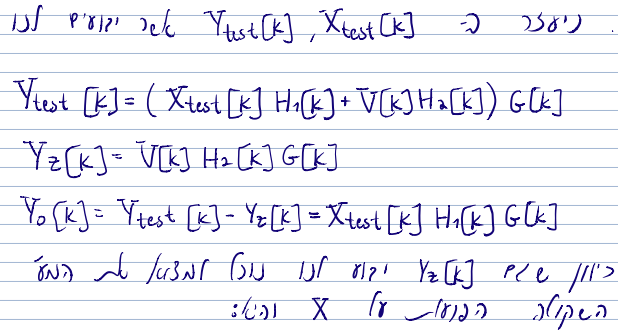 ניעזר ב- X_test[k], Y_test[k] אשר ידועים לנו
Y_test[k] = (X_test[k] H_1[k] + V[k] H_2[k]) G[k]
Y_z[k] = V[k] H_2[k] G[k]
Y_0[k] = Y_test[k] - Y_z[k] = X_test[k] H_1[k] G[k]
כיוון שגם Y_z[k] ידוע לנו נוכל למצוא את המע'
השקולה הפועלת על X והיא: